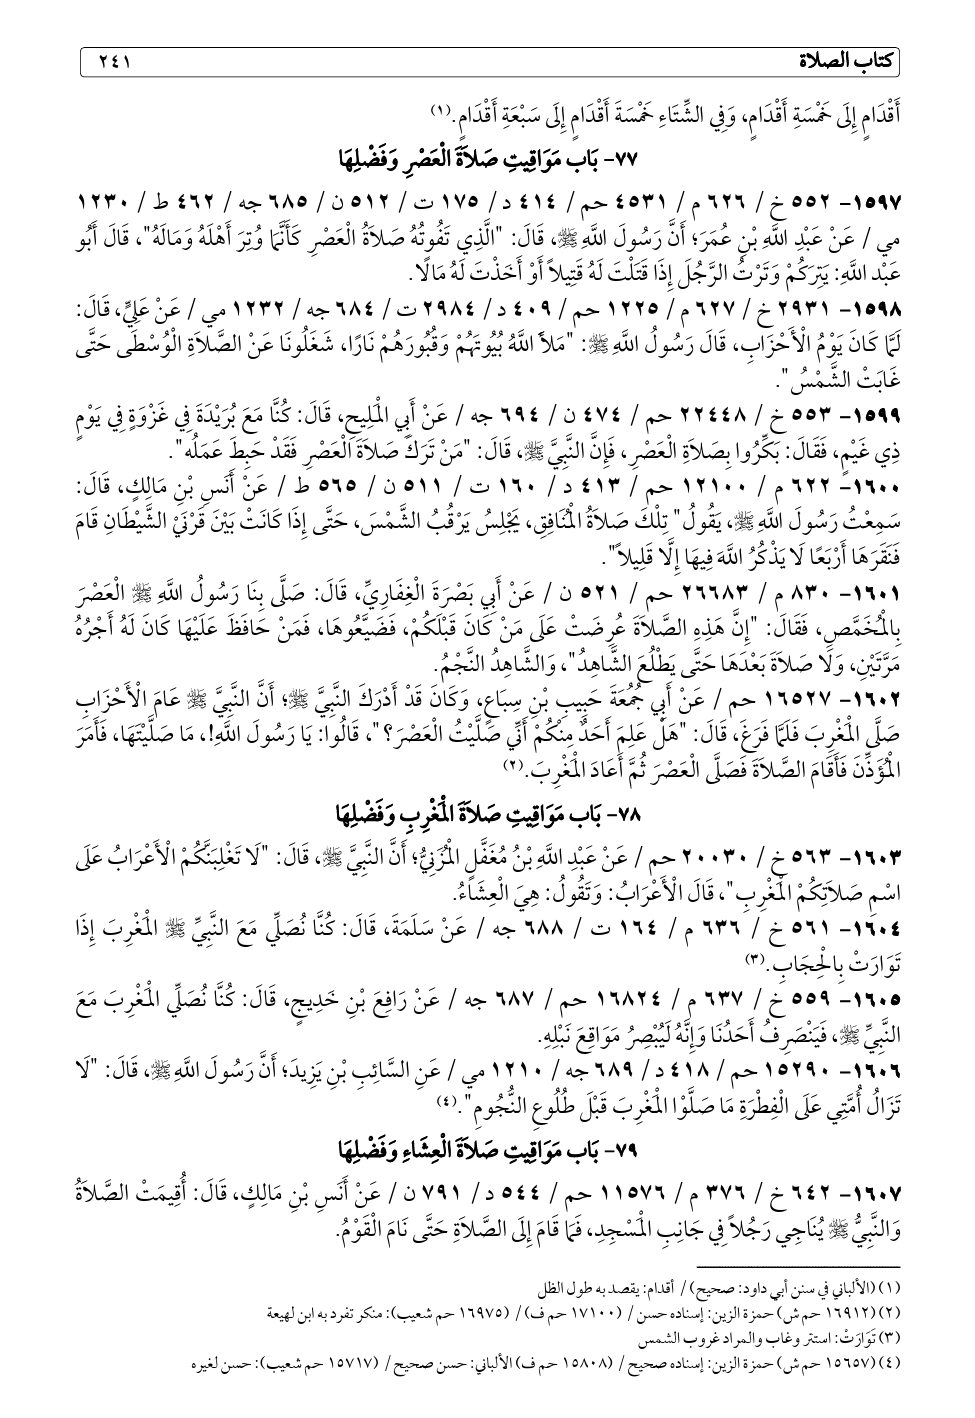 كتاب الصلاة ٢٤١
أَقْدَامٍ إِلَى خَمْسَةِ أَقْدَامٍ، وَفِي الشِّتَاءِ خَمْسَةَ أَقْدَامٍ إِلَى سَبْعَةِ أَقْدَامٍ.(١)
٧٧- بَاب مَوَاقِيتِ صَلَاةَ الْعَصْرِ وَفَضْلِهَا
١٥٩٧- ٥٥٢ خ/ ٦٢٦ م/ ٤٥٣١ حم/ ٤١٤ د/ ١٧٥ ت/ ٥١٢ ن/ ٦٨٥ جه/ ٤٦٢ ط/ ١٢٣٠
مي/ عَنْ عَبْدِ اللَّهِ بْنِ عُمَرَ؛ أَنَّ رَسُولَ اللَّهِ ﷺ، قَالَ: "الَّذِي تَفُوتُهُ صَلَاةُ الْعَصْرِ كَأَنَّمَا وُتِرَ أَهْلَهُ وَمَالَهُ"، قَالَ أَبُو
عَبْد اللَّهِ: يَتِرَكُمْ وَتَرْتُ الرَّجُلَ إِذَا قَتَلْتَ لَهُ قَتِيلاً أَوْ أَخَذْتَ لَهُ مَالًا.
١٥٩٨- ٢٩٣١ خ/ ٦٢٧ م/ ١٢٢٥ حم/ ٤٠٩ د/ ٢٩٨٤ ت/ ٦٨٤ جه/ ١٢٣٢ مي/ عَنْ عَلِيٍّ، قَالَ:
لَمَّا كَانَ يَوْمُ الْأَحْزَابِ، قَالَ رَسُولُ اللَّهِ ﷺ: "مَلأَ اللَّهُ بُيُوتَهُمْ وَقُبُورَهُمْ نَارًا، شَغَلُونَا عَنْ الصَّلَاةِ الْوُسْطَى حَتَّى
غَابَتْ الشَّمْسُ".
١٥٩٩- ٥٥٣ خ/ ٢٢٤٤٨ حم/ ٤٧٤ ن/ ٦٩٤ جه/ عَنْ أَبِي الْمَلِيحِ، قَالَ: كُنَّا مَعَ بُرَيْدَةَ فِي غَزْوَةٍ فِي يَوْمٍ
ذِي غَيْمٍ، فَقَالَ: بَكِّرُوا بِصَلَاةِ الْعَصْرِ، فَإِنَّ النَّبِيَّ ﷺ، قَالَ: "مَنْ تَرَكَ صَلَاةَ الْعَصْرِ فَقَدْ حَبِطَ عَمَلُه".
١٦٠٠- ٦٢٢ م/ ١٢١٠٠ حم/ ٤١٣ د/ ١٦٠ ت/ ٥١١ ن/ ٥٦٥ ط/ عَنْ أَنَسِ بْنِ مَالِكٍ، قَالَ:
سَمِعْتُ رَسُولَ اللَّهِ ﷺ، يَقُولُ" تِلْكَ صَلَاةُ الْمُنَافِقِ، يَجْلِسُ يَرْقُبُ الشَّمْسَ، حَتَّى إِذَا كَانَتْ بَيْنَ قَرْنَيْ الشَّيْطَانِ قَامَ
فَنَقَرَهَا أَرْبَعًا لَا يَذْكُرُ اللَّهَ فِيهَا إِلَّا قَلِيلاً".
١٦٠١- ٨٣٠ م/ ٢٦٦٨٣ حم/ ٥٢١ ن/ عَنْ أَبِي بَصْرَةَ الْغِفَارِيِّ، قَالَ: صَلَّى بِنَا رَسُولُ اللَّهِ ﷺ الْعَصْرَ
بِالْمُخَمَّصِ، فَقَالَ: "إِنَّ هَذِهِ الصَّلَاةَ عُرِضَتْ عَلَى مَنْ كَانَ قَبْلَكُمْ، فَضَيَّعُوهَا، فَمَنْ حَافَظَ عَلَيْهَا كَانَ لَهُ أَجْرُهُ
مَرَّتَيْنِ، وَلَا صَلَاةَ بَعْدَهَا حَتَّى يَطْلُعَ الشَّاهِدُ"، وَالشَّاهِدُ النَّجْمُ.
١٦٠٢- ١٦٥٢٧ حم/ عَنْ أَبِي جُمُعَةَ حَبِيبِ بْنِ سِبَاعٍ، وَكَانَ قَدْ أَدْرَكَ النَّبِيَّ ﷺ؛ أَنَّ النَّبِيَّ ﷺ عَامَ الْأَحْزَابِ
صَلَّى الْمَغْرِبَ فَلَمَّا فَرَغَ، قَالَ: "هَلْ عَلِمَ أَحَدٌ مِنْكُمْ أَنِّي صَلَّيْتُ الْعَصْرَ؟"، قَالُوا: يَا رَسُولَ اللَّهِ!، مَا صَلَّيْتَهَا، فَأَمَرَ
الْمُؤَذِّنَ فَأَقَامَ الصَّلَاةَ فَصَلَّى الْعَصْرَ ثُمَّ أَعَادَ الْمَغْرِبَ.(٢)
٧٨- بَاب مَوَاقِيتِ صَلَاةَ الْمَغْرِبِ وَفَضْلِهَا
١٦٠٣- ٥٦٣ خ/ ٢٠٠٣٠ حم/ عَنْ عَبْدِ اللَّهِ بْنُ مُغَفَّلٍ الْمُزَنِيُّ؛ أَنَّ النَّبِيَّ ﷺ، قَالَ: "لَا تَغْلِبَنَّكُمْ الْأَعْرَابُ عَلَى
اسْمِ صَلَاتِكُمْ الْمَغْرِبِ"، قَالَ الْأَعْرَابُ: وَتَقُولُ: هِيَ الْعِشَاءُ.
١٦٠٤- ٥٦١ خ/ ٦٣٦ م/ ١٦٤ ت/ ٦٨٨ جه/ عَنْ سَلَمَةَ، قَالَ: كُنَّا نُصَلِّي مَعَ النَّبِيِّ ﷺ الْمَغْرِبَ إِذَا
تَوَارَتْ بِالْحِجَابِ.(٣)
١٦٠٥- ٥٥٩ خ/ ٦٣٧ م/ ١٦٨٢٤ حم/ ٦٨٧ جه/ عَنْ رَافِعَ بْنِ خَدِيجٍ، قَالَ: كُنَّا نُصَلِّي الْمَغْرِبَ مَعَ
النَّبِيِّ ﷺ، فَيَنْصَرِفُ أَحَدُنَا وَإِنَّهُ لَيُبْصِرُ مَوَاقِعَ نَبْلِهِ.
١٦٠٦- ١٥٢٩٠ حم/ ٤١٨ د/ ٦٨٩ جه/ ١٢١٠ مي/ عَنِ السَّائِبِ بْنِ يَزِيدَ؛ أَنَّ رَسُولَ اللَّهِ ﷺ، قَالَ: "لَا
تَزَالُ أُمَّتِي عَلَى الْفِطْرَةِ مَا صَلَّوْا الْمَغْرِبَ قَبْلَ طُلُوعِ النُّجُومِ".(٤)
٧٩- بَاب مَوَاقِيتِ صَلَاةَ الْعِشَاءِ وَفَضْلِهَا
١٦٠٧- ٦٤٢ خ/ ٣٧٦ م/ ١١٥٧٦ حم/ ٥٤٤ د/ ٧٩١ ن/ عَنْ أَنَسِ بْنِ مَالِكٍ، قَالَ: أُقِيمَتْ الصَّلَاةُ
وَالنَّبِيُّ ﷺ يُنَاجِي رَجُلاً فِي جَانِبِ الْمَسْجِدِ، فَمَا قَامَ إِلَى الصَّلَاةِ حَتَّى نَامَ الْقَوْمُ.
(١) (الألباني في سنن أبي داود: صحيح)/ أقدام: يقصد به طول الظل
(٢) (١٦٩١٢ حم ش) حمزة الزين: إسناده حسن/ (١٧١٠٠ حم ف)/ (١٦٩٧٥ حم شعيب): منكر تفرد به ابن لهيعة
(٣) تَوَارَتْ: استتر وغاب والمراد غروب الشمس
(٤) (١٥٦٥٧ حم ش) حمزة الزين: إسناده صحيح/ (١٥٨٠٨ حم ف) الألباني: حسن صحيح/ (١٥٧١٧ حم شعيب): حسن لغيره